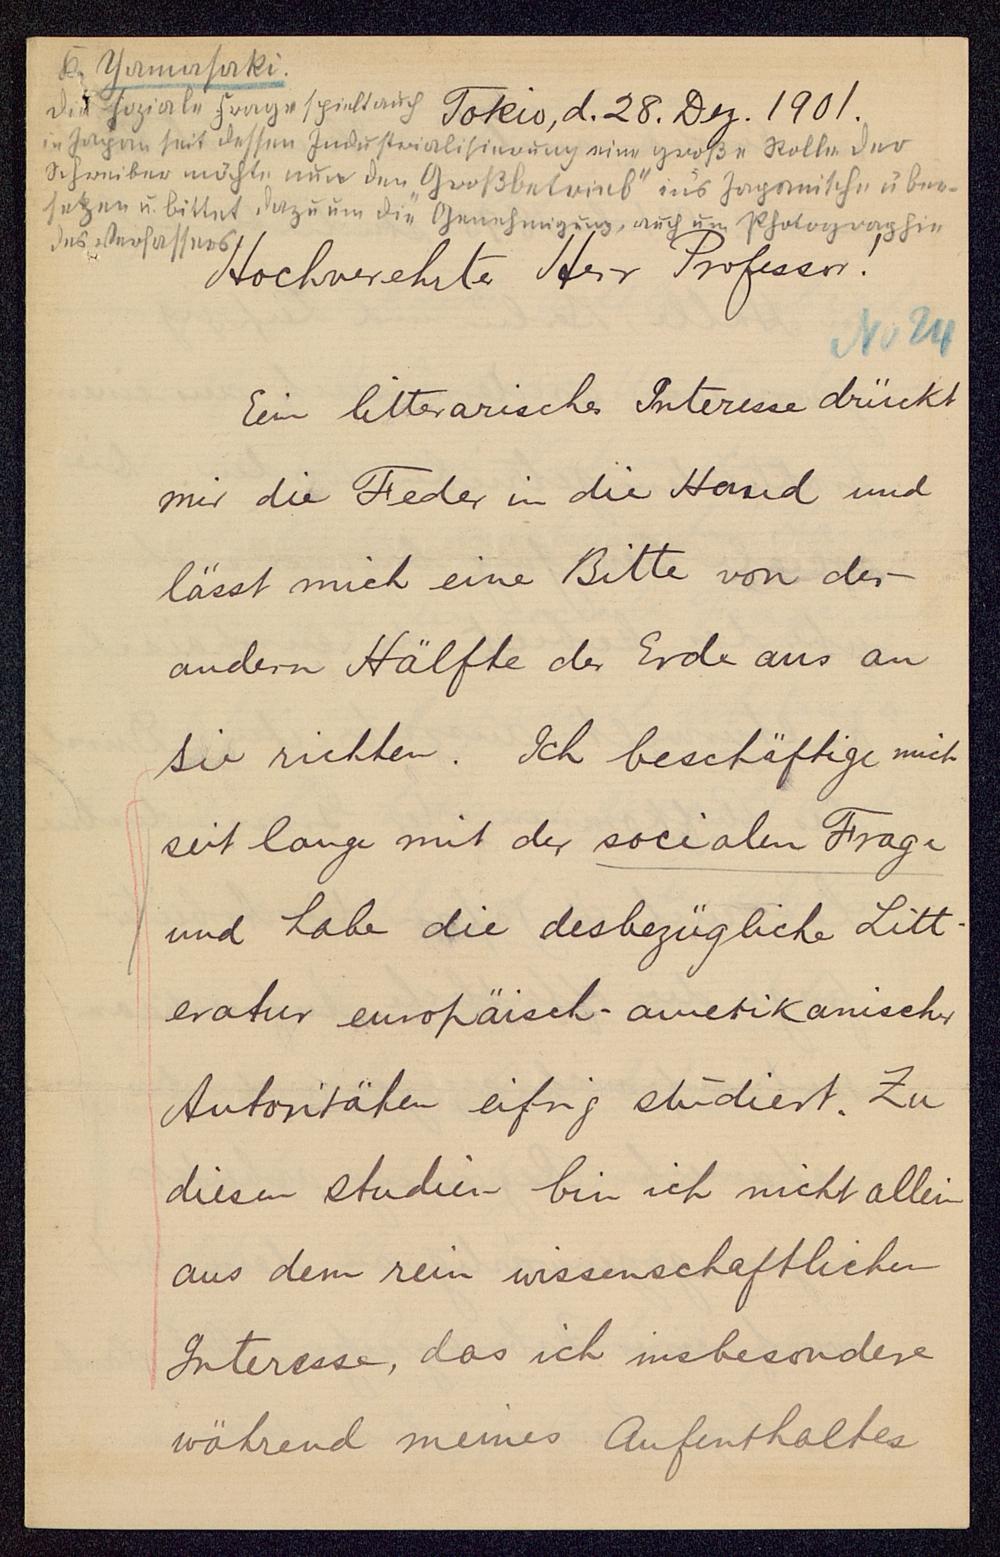 K. Yamasaki.
Die soziale Frage spielt auch
Tokio, d. 28. Dez. 1901.
in Japan seit dessen Industrialisierung eine große Rolle der
Schreiber möchte nun den „Großbetrieb" ins Japanische über-
setzen u. bittet dazu um die Genehmigung, auch um Photographie
des Verfassers
Hochverehrter Herr Professor!
No 24
Ein litterarisches Interesse drückt
mir die Feder in die Hand und
lässt mich eine Bitte von der
andern Hälfte der Erde aus an
Sie richten. Ich beschäftige mich
seit lange mit der socialen Frage
und habe die desbezügliche Litt-
eratur europäisch-amerikanischer
Autoritäten eifrig studiert. Zu
diesen Studien bin ich nicht allein
aus dem rein wissenschaftlichen
Interesse, das ich insbesondere
während meines Aufenthaltes